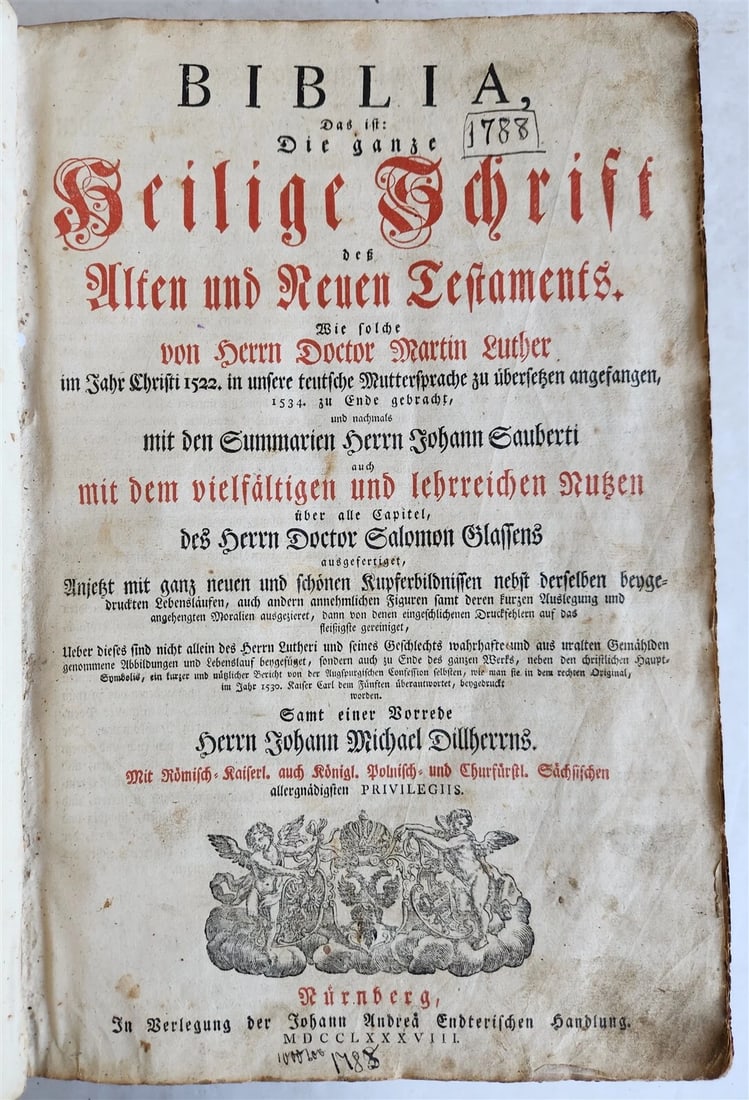 BIBLIA,
Das ist:
1788
Die ganze
Heilige Schrift
deß
Alten und Neuen Testaments.
Wie solche
von Herrn Doctor Martin Luther
im Jahr Christi 1522. in unsere teutsche Muttersprache zu übersetzen angefangen,
1534. zu Ende gebracht,
und nachmals
mit den Summarien Herrn Johann Sauberti
auch
mit dem vielfältigen und lehrreichen Nutzen
über alle Capitel,
des Herrn Doctor Salomon Glassens
ausgefertiget,
Anjetzt mit ganz neuen und schönen Kupferbildnissen nebst derselben beyge-
druckten Lebensläufen, auch andern annehmlichen Figuren samt deren kurzen Auslegung und
angehengten Moralien ausgezieret, dann von denen eingeschlichenen Druckfehlern auf das
fleißigste gereiniget,
Ueber dieses sind nicht allein des Herrn Lutheri und seines Geschlechts wahrhafte und aus uralten Gemählden
genommene Abbildungen und Lebenslauf beygefüget, sondern auch zu Ende des ganzen Werks, neben den christlichen Haupt-
Symbolis, ein kurzer und nützlicher Bericht von der Augspurgischen Confession selbsten, wie man sie in dem rechten Original,
im Jahr 1530. Kaiser Carl dem Fünften überantwortet, beygedruckt
worden.
Samt einer Vorrede
Herrn Johann Michael Dillherrns.
Mit Römisch-Kaiserl. auch Königl. Polnisch- und Churfürstl. Sächsischen
allergnädigsten PRIVILEGIIS.
Nürnberg,
In Verlegung der Johann Andreä Endterischen Handlung.
MDCCLXXXVIII.
1788